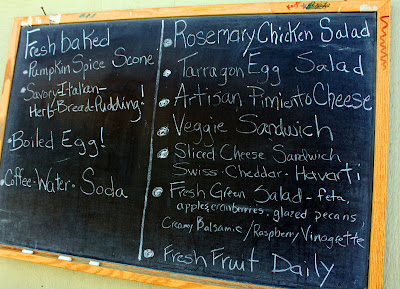 Fresh baked
• Pumpkin Spice Scone
• Savory-Italian-
Herb-Bread-Pudding!
• Boiled Egg!
• Coffee-Water- Soda
• Rosemary Chicken Salad
• Tarragon Egg Salad
• Artisan Pimiento Cheese
• Veggie Sandwich
• Sliced Cheese Sandwich
Swiss-Cheddar-Havarti
• Fresh Green Salad - feta,
apples, cranberries, glazed pecans
Creamy Balsamic / Raspberry Vinagrette
• Fresh Fruit Daily